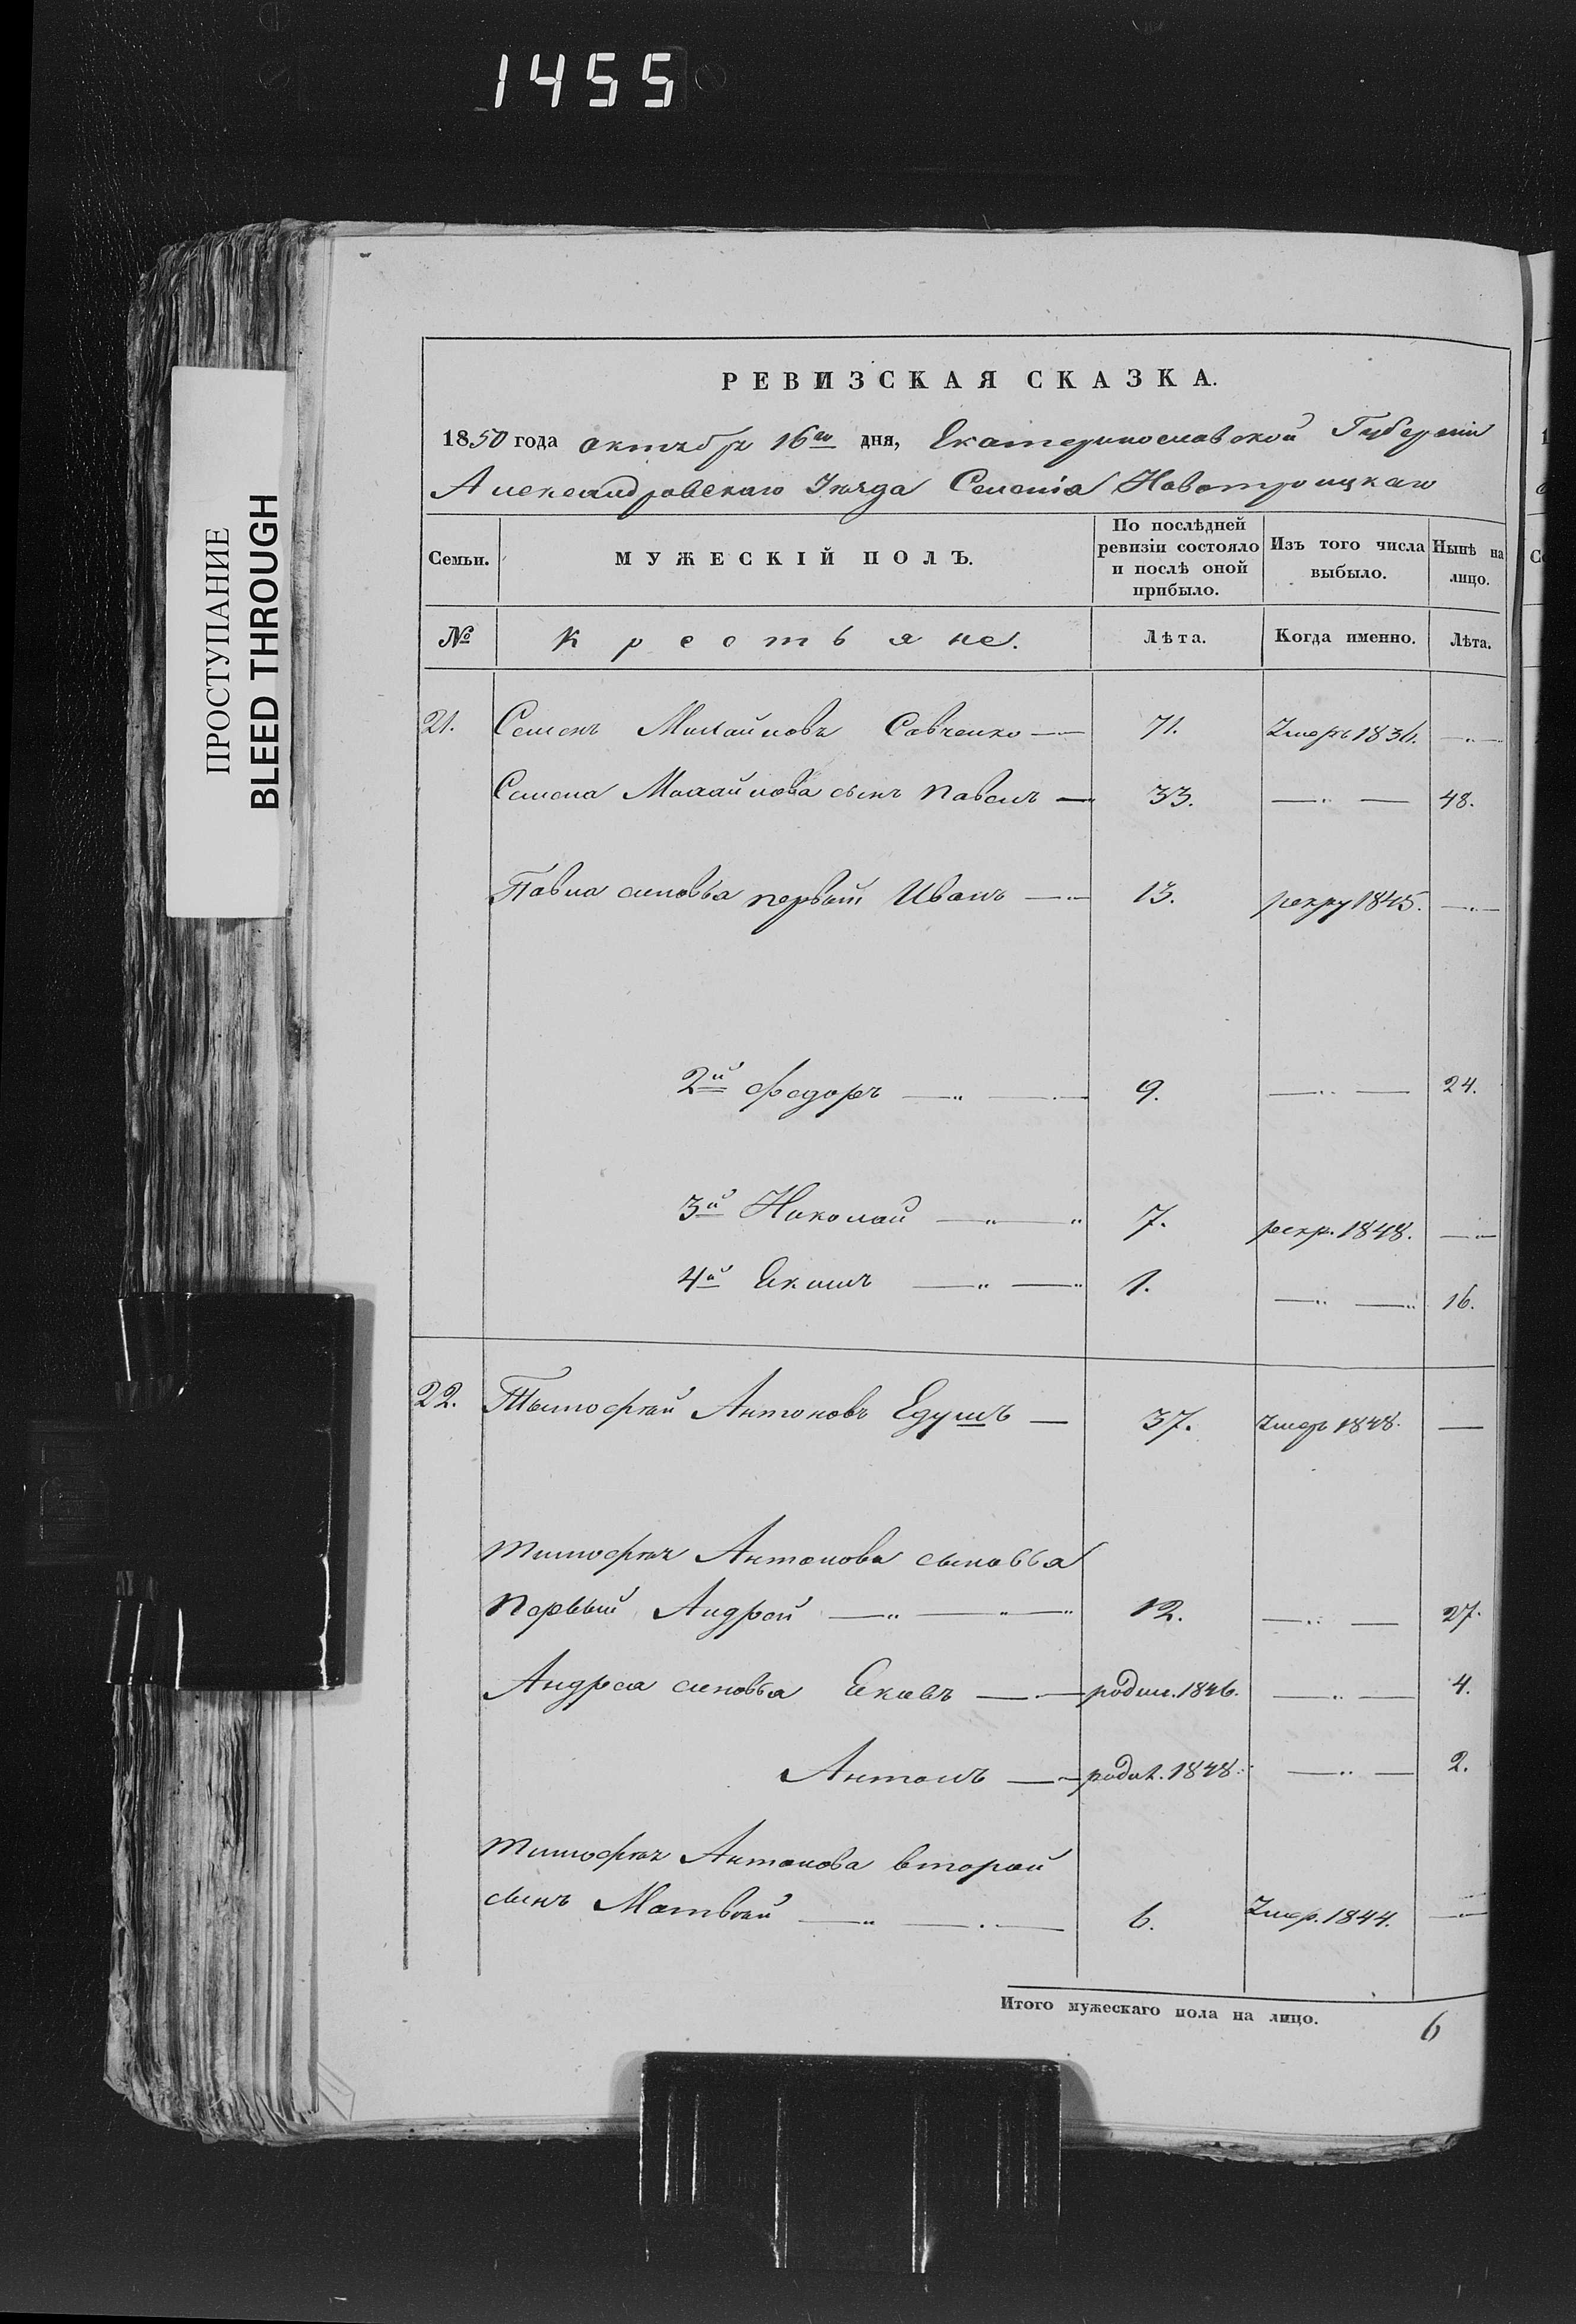 1455
ПРОСТУПАНИЕ
BLEED THROUGH
РЕВИЗСКАЯ СКАЗКА.
1850 года октября 16го дня, Екатеринославской Губерніи
Александровскаго Уѣзда Селенія Новотроицкаго
Семьи. МУЖЕСКІЙ ПОЛЪ. По послѣдней ревизіи состояло и послѣ оной прибыло. Изъ того числа выбыло. Нынѣ на лицо.
№ Крестьяне. Лѣта. Когда именно. Лѣта.
21. Семенъ Михайловъ Савченко — 71. Умеръ 1836. —〃—
Семена Михайлова сынъ Павелъ — 33. —〃— 48.
Павла сыновья первый Иванъ — 13. рекру 1845. —〃—
2й Федоръ —〃— 9. —〃— 24.
3й Николай —〃—〃 7. рекр. 1848. —〃—
4й Екимъ —〃—〃 1. —〃—〃 16.
22. Тымофѣй Антоновъ Едушъ — 37. Умеръ 1848. —
Тимофѣя Антонова сыновья
Первый Андрей —〃—〃—〃 12. —〃— 27.
Андрея сыновья Екивъ — родил. 1846. —〃— 4.
Антонъ — родил. 1848. —〃— 2.
Тимофѣя Антонова второй
сынъ Матвѣй —〃— . — 6. Умер. 1844. —〃—
Итого мужескаго пола на лицо. 6